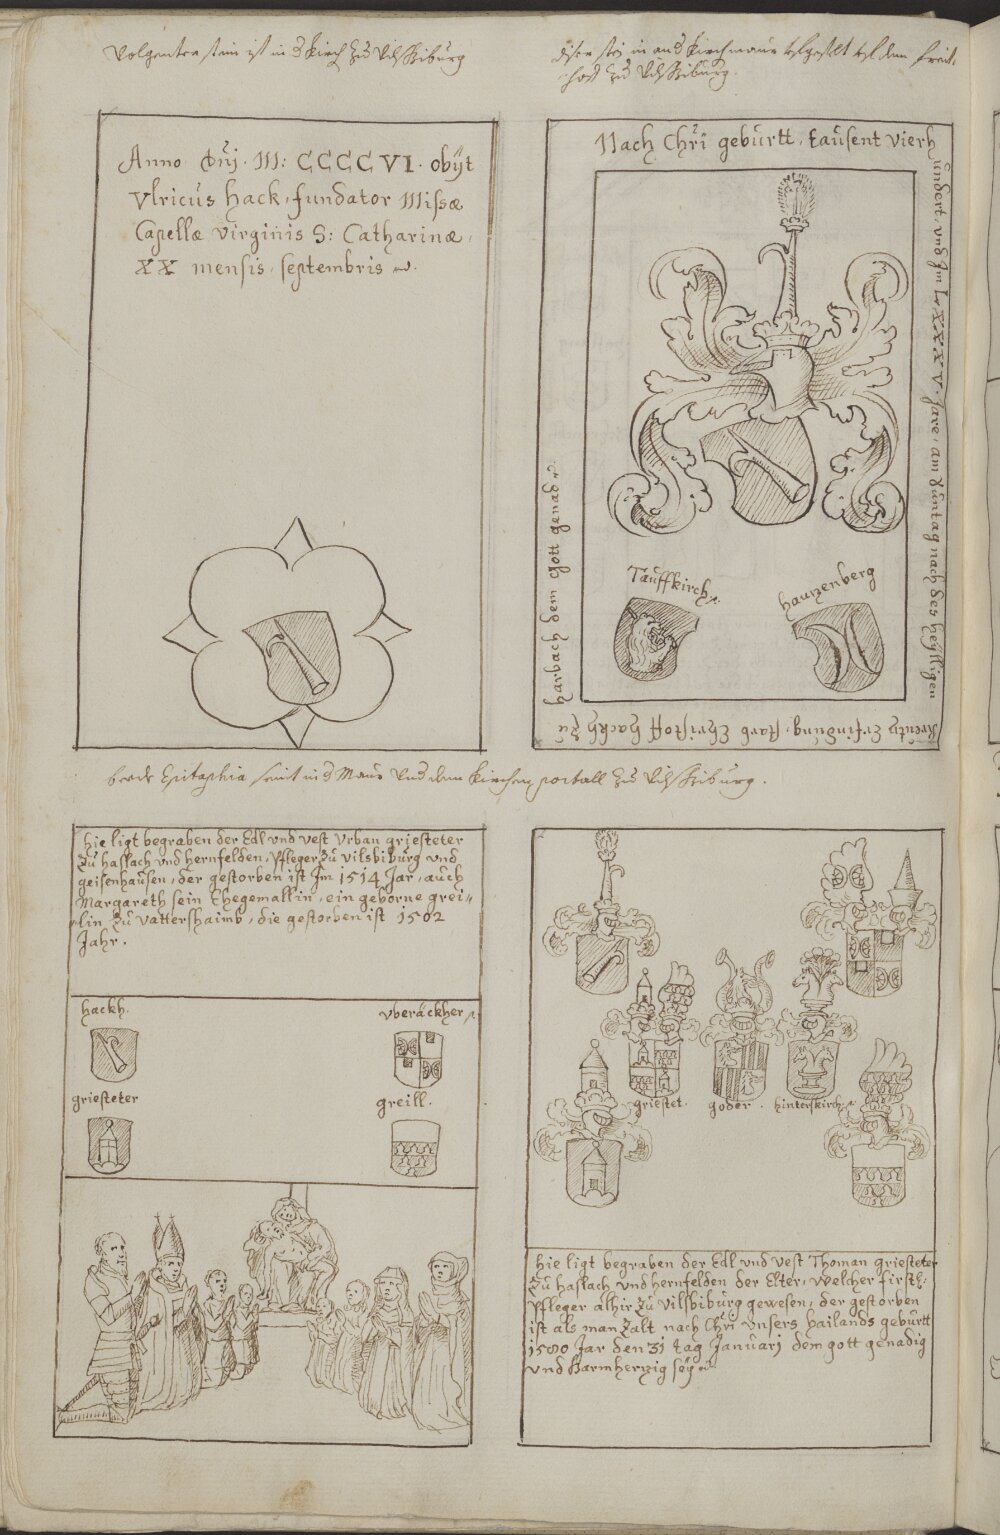 Volgenter stain ist in d Kirch zu Vilsbiburg
diser stei in an d Kirchmaur
hoff zu Vilsbiburg.
Anno Dnj. M: CCCCVI. obijt
Vlricus Hack, fundator Missæ
Capellæ Virginis S: Catharinæ,
XX mensis, septembris
Nach Chrī geburtt, tausent Vierh
undert, vnd Jm LXXXV. Jare, am Suntag nach des heylligen
Kreutz Erfindung, starb Christoff Hackh zu
Harbach dem Gott genad
Tauffkirch
Hauzenberg
beede Epitaphia seint in d Maur Vnd dem Kirchen portall zu Vilsbiburg.
Hie ligt begraben der Edl vnd vest Vrban griesteter
zu haslach vnd hernfelden, Pfleger zu vilsbiburg vnd
geisenhausen, der gestorben ist Jm 1514 Jar, auch
Margareth sein Ehegemallin, ein geborne grei-
lin zu vattershaimb, die gestorben ist 1502
Jahr.
hackh.
vberäckher
griesteter
greill.
griestet.
goder.
hinterskirch
Hie ligt begraben der Edl vnd vest Thoman griesteter
zu haslach vnd hernfelden der Elter, welcher fürstl:
Pfleger alhir zu Vilsbiburg gewesen, der gestorben
ist als man zalt nach Chrī vnsers hailands geburtt
1580 Jar den 31 tag Januarj dem gott genadig
vnd Barmherzig sey